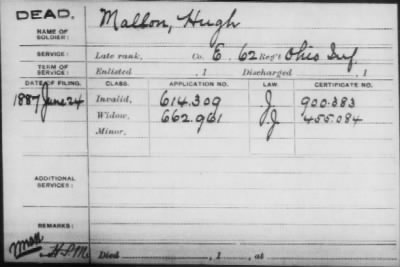 DEAD.
NAME OF SOLDIER: Mallon, Hugh
SERVICE: Late rank, Co. E. 62 Reg't Ohio Inf.
TERM OF SERVICE: Enlisted , 1 Discharged , 1
DATE OF FILING. CLASS. APPLICATION NO. LAW. CERTIFICATE NO.
1887 June 24 Invalid, 614.309 J. 900.383
Widow, 662.961 J.J. 455.084
Minor,
ADDITIONAL SERVICES:
REMARKS:
Died , 1 , at